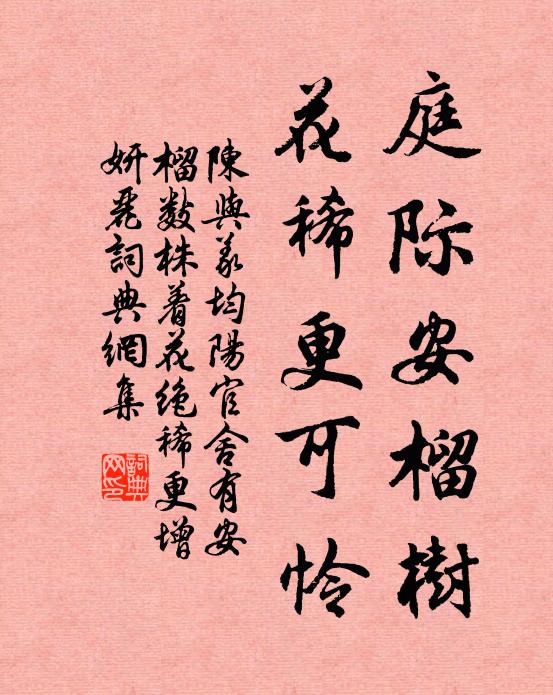 庭际安榴樹
花稀更可怜
陳與義均陽官舍有安
榴数株着花绝稀更增
妍麗詞典網集
詞典
网印